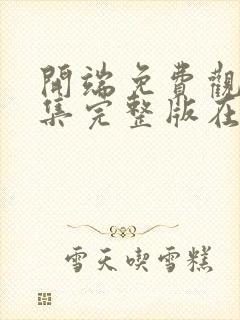 開端免費觀
集完整版在
雪天喫雪糕